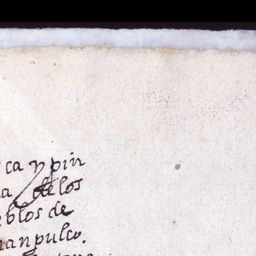 ca y pin
a de los
blos de
nanpulco.